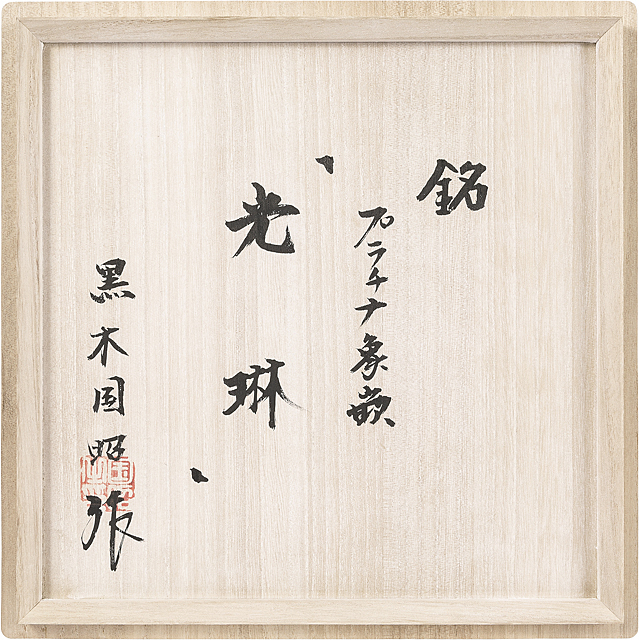 銘
プラチナ象嵌
光琳
黒木国昭